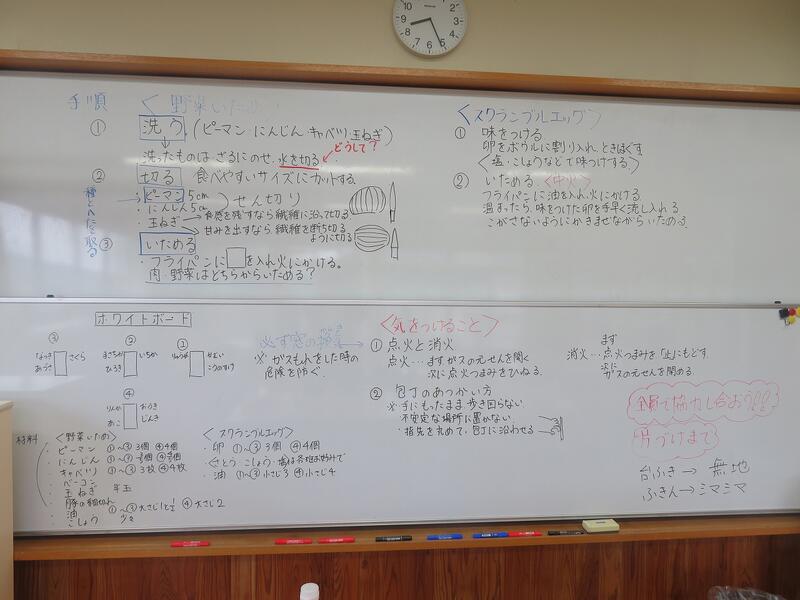 手順 〈野菜いため〉
① 洗う (ピーマン・にんじん・キャベツ・玉ねぎ)
どうして?
洗ったものは、ざるにのせ、水を切る。
② 切る 食べやすいサイズにカットする。
種とへたを取る
・ピーマン 5cm
・にんじん 5cm
せん切り
・玉ねぎ → 食感を残すなら繊維に沿って切る
甘みを出すなら繊維を断ち切る
ように切る
③ いためる
・フライパンに□を入れ火にかける。
肉・野菜はどちらからいためる?
〈スクランブルエッグ〉
① 味をつける
卵をボウルに割り入れ、ときほぐす。
〈塩・こしょうなどで味つけする〉
② いためる 〈中火〉
フライパンに油を入れ、火にかける。
温まったら、味をつけた卵を手早く流し入れる
こがさないようにかきまぜながらいためる
ホワイトボード
③ ② ①
さくら
まさちか いちか
ひろき
④
りんか おうき
あこ じんき
材料 〈野菜いため〉
・ピーマン ①~③ 3個 ④4個
・にんじん ①~③
・キャベツ ①~③ 3枚 ④4枚
・ベーコン
・玉ねぎ 半玉
・豚の細切れ
・油 ①~③ 大さじ1と1/2 ④大さじ2
・こしょう 少々
〈スクランブルエッグ〉
・卵 ①~③ 3個 ④4個
・さとう・こしょう・塩は各班お好みで
・油 ①~③ 小さじ3 ④小さじ4
〈気をつけること〉
必ず窓の
※ガスもれをした時の
危険を防ぐ。
① 点火と消火
点火…まずガスの元せんを開く
次に点火つまみをひねる。
まず
消火…点火つまみを「止」にもどす。
次に
ガスの元せんを閉める。
② 包丁のあつかい方
※手にもったまま歩き回らない
・不安定な場所に置かない
・指先を丸めて、包丁に沿わせる
全員で協力し合おう!!!
片づけまで
台ふき→無地
ふきん→シマシマ